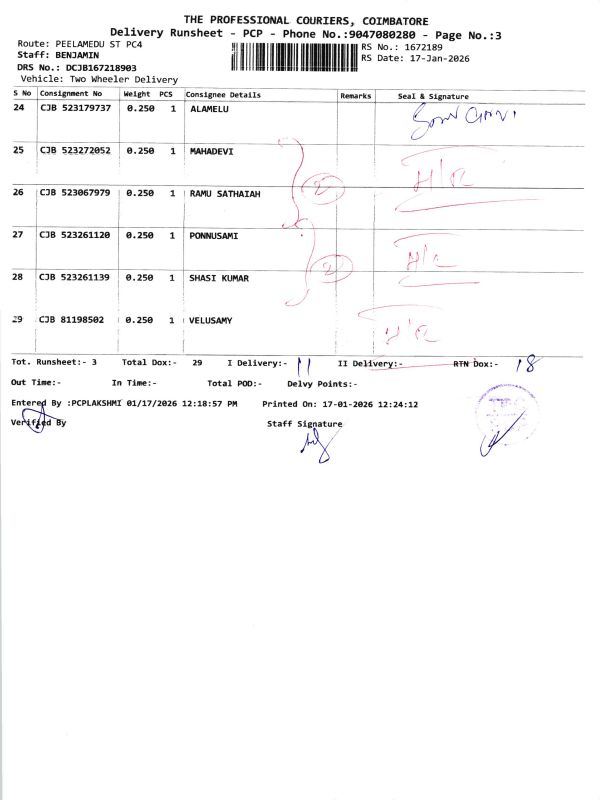 THE PROFESSIONAL COURIERS, COIMBATORE
Delivery Runsheet - PCP - Phone No.:9047080280 - Page No.:3
Route: PEELAMEDU ST PC4 RS No.: 1672189
Staff: BENJAMIN RS Date: 17-Jan-2026
DRS No.: DCJB167218903
Vehicle: Two Wheeler Delivery
S No Consignment No Weight PCS Consignee Details Remarks Seal & Signature
24 CJB 523179737 0.250 1 ALAMELU
25 CJB 523272052 0.250 1 MAHADEVI
26 CJB 523067979 0.250 1 RAMU SATHAIAH 2 H/R
27 CJB 523261120 0.250 1 PONNUSAMI H/R
28 CJB 523261139 0.250 1 SHASI KUMAR 2
29 CJB 81198502 0.250 1 VELUSAMY H/R
Tot. Runsheet:- 3 Total Dox:- 29 I Delivery:- 11 II Delivery:- RTN Dox:- 18
Out Time:- In Time:- Total POD:- Delvy Points:-
Entered By :PCPLAKSHMI 01/17/2026 12:18:57 PM Printed On: 17-01-2026 12:24:12
Verified By Staff Signature